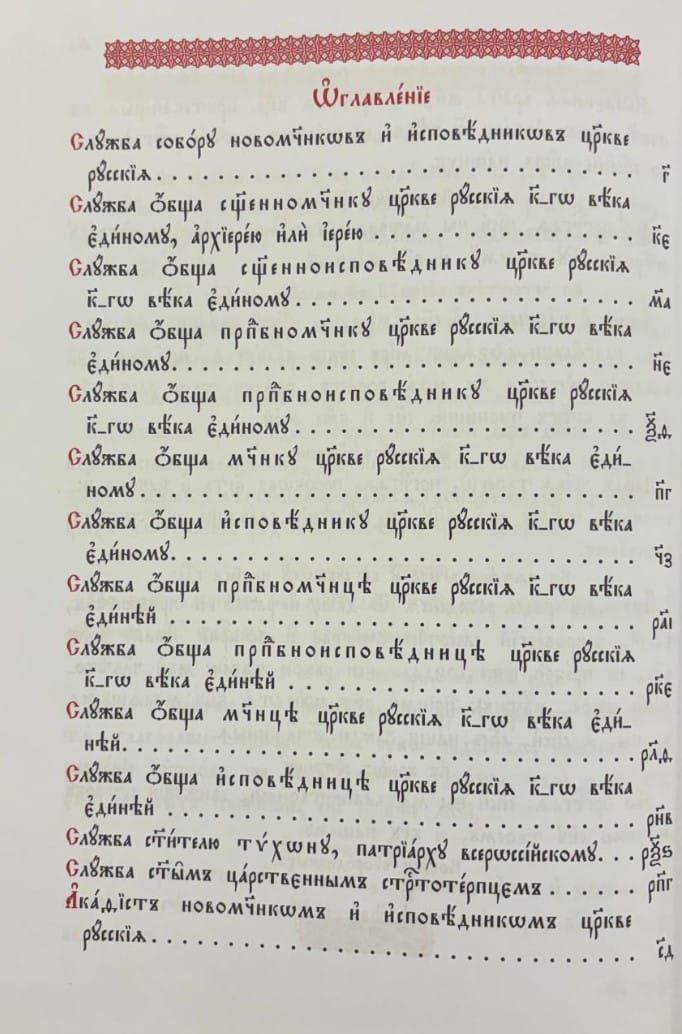 Ѡ҆главле́нїе
Слꙋжба собо́рꙋ новомч҃нкѡвъ и҆ и҆сповѣ́дникѡвъ цр҃кве
рꙋсскїѧ. . . . . . . . . . . . . . . . . . . . . . . . . . . . г҃
Слꙋжба ѻ҆́бща сщ҃енномч҃нкꙋ цр҃кве рꙋсскїѧ к҃-гѡ вѣ́ка
є҆ди́номꙋ, а҆рхїере́ю и҆лѝ і҆ере́ю . . . . . . . . . . . . . . к҃є
Слꙋжба ѻ҆́бща сщ҃енноисповѣ́дникꙋ цр҃кве рꙋсскїѧ
к҃-гѡ вѣ́ка є҆ди́номꙋ. . . . . . . . . . . . . . . . . . . м҃а
Слꙋжба ѻ҆́бща прпⷣбномч҃нкꙋ цр҃кве рꙋсскїѧ к҃-гѡ вѣ́ка
є҆ди́номꙋ. . . . . . . . . . . . . . . . . . . . . . . . . . н҃є
Слꙋжба ѻ҆́бща прпⷣбноисповѣ́дникꙋ цр҃кве рꙋсскїѧ
к҃-гѡ вѣ́ка є҆ди́номꙋ. . . . . . . . . . . . . . . . . . . ѯ҃ѳ
Слꙋжба ѻ҆́бща мч҃нкꙋ цр҃кве рꙋсскїѧ к҃-гѡ вѣ́ка є҆ди́-
номꙋ. . . . . . . . . . . . . . . . . . . . . . . . . . . . п҃г
Слꙋжба ѻ҆́бща и҆сповѣ́дникꙋ цр҃кве рꙋсскїѧ к҃-гѡ вѣ́ка
є҆ди́номꙋ. . . . . . . . . . . . . . . . . . . . . . . . . . ч҃з
Слꙋжба ѻ҆́бща прпⷣбномч҃нцѣ цр҃кве рꙋсскїѧ к҃-гѡ вѣ́ка
є҆ди́нѣй . . . . . . . . . . . . . . . . . . . . . . . . . . ра҃і
Слꙋжба ѻ҆́бща прпⷣбноисповѣ́дницѣ цр҃кве рꙋсскїѧ
к҃-гѡ вѣ́ка є҆ди́нѣй . . . . . . . . . . . . . . . . . . . рк҃є
Слꙋжба ѻ҆́бща мч҃нцѣ цр҃кве рꙋсскїѧ к҃-гѡ вѣ́ка є҆ди́-
нѣй. . . . . . . . . . . . . . . . . . . . . . . . . . . . рл҃ѳ
Слꙋжба ѻ҆́бща и҆сповѣ́дницѣ цр҃кве рꙋсскїѧ к҃-гѡ вѣ́ка
є҆ди́нѣй . . . . . . . . . . . . . . . . . . . . . . . . . . рн҃в
Слꙋжба ст҃и́телю тѵ́хѡнꙋ, патрїа́рхꙋ всерѡссі́йскомꙋ. . . рѯ҃ѕ
Слꙋжба ст҃ы̑мъ ца́рствєннымъ стрⷭ҇тоте́рпцємъ . . . . . . рп҃г
А҆ка́ѳїстъ новомч҃нкѡмъ и҆ и҆сповѣ́дникѡмъ цр҃кве
рꙋсскїѧ. . . . . . . . . . . . . . . . . . . . . . . . . . . с҃д